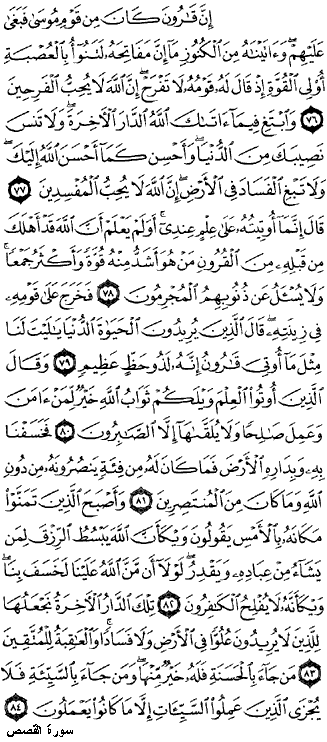 إِنَّ قَٰرُونَ كَانَ مِن قَوْمِ مُوسَىٰ فَبَغَىٰ
عَلَيْهِمْ ۖ وَءَاتَيْنَٰهُ مِنَ ٱلْكُنُوزِ مَآ إِنَّ مَفَاتِحَهُۥ لَتَنُوٓأُ بِٱلْعُصْبَةِ
أُو۟لِى ٱلْقُوَّةِ إِذْ قَالَ لَهُۥ قَوْمُهُۥ لَا تَفْرَحْ ۖ إِنَّ ٱللَّهَ لَا يُحِبُّ ٱلْفَرِحِينَ
﴿٧٦﴾ وَٱبْتَغِ فِيمَآ ءَاتَىٰكَ ٱللَّهُ ٱلدَّارَ ٱلْءَاخِرَةَ ۖ وَلَا تَنسَ
نَصِيبَكَ مِنَ ٱلدُّنْيَا ۖ وَأَحْسِن كَمَآ أَحْسَنَ ٱللَّهُ إِلَيْكَ ۖ
وَلَا تَبْغِ ٱلْفَسَادَ فِى ٱلْأَرْضِ ۖ إِنَّ ٱللَّهَ لَا يُحِبُّ ٱلْمُفْسِدِينَ ﴿٧٧﴾
قَالَ إِنَّمَآ أُوتِيتُهُۥ عَلَىٰ عِلْمٍ عِندِىٓ ۚ أَوَلَمْ يَعْلَمْ أَنَّ ٱللَّهَ قَدْ أَهْلَكَ
مِن قَبْلِهِۦ مِنَ ٱلْقُرُونِ مَنْ هُوَ أَشَدُّ مِنْهُ قُوَّةً وَأَكْثَرُ جَمْعًا ۚ
وَلَا يُسْـَٔلُ عَن ذُنُوبِهِمُ ٱلْمُجْرِمُونَ ﴿٧٨﴾ فَخَرَجَ عَلَىٰ قَوْمِهِۦ
فِى زِينَتِهِۦ ۖ قَالَ ٱلَّذِينَ يُرِيدُونَ ٱلْحَيَوٰةَ ٱلدُّنْيَا يَٰلَيْتَ لَنَا
مِثْلَ مَآ أُوتِىَ قَٰرُونُ إِنَّهُۥ لَذُو حَظٍّ عَظِيمٍ ﴿٧٩﴾ وَقَالَ
ٱلَّذِينَ أُوتُوا۟ ٱلْعِلْمَ وَيْلَكُمْ ثَوَابُ ٱللَّهِ خَيْرٌ لِّمَنْ ءَامَنَ
وَعَمِلَ صَٰلِحًا وَلَا يُلَقَّىٰهَآ إِلَّا ٱلصَّٰبِرُونَ ﴿٨٠﴾ فَخَسَفْنَا
بِهِۦ وَبِدَارِهِ ٱلْأَرْضَ فَمَا كَانَ لَهُۥ مِن فِئَةٍ يَنصُرُونَهُۥ مِن دُونِ
ٱللَّهِ وَمَا كَانَ مِنَ ٱلْمُنتَصِرِينَ ﴿٨١﴾ وَأَصْبَحَ ٱلَّذِينَ تَمَنَّوْا۟
مَكَانَهُۥ بِٱلْأَمْسِ يَقُولُونَ وَيْكَأَنَّ ٱللَّهَ يَبْسُطُ ٱلرِّزْقَ لِمَن
يَشَآءُ مِنْ عِبَادِهِۦ وَيَقْدِرُ ۖ لَوْلَآ أَن مَّنَّ ٱللَّهُ عَلَيْنَا لَخَسَفَ بِنَا ۖ
وَيْكَأَنَّهُۥ لَا يُفْلِحُ ٱلْكَٰفِرُونَ ﴿٨٢﴾ تِلْكَ ٱلدَّارُ ٱلْءَاخِرَةُ نَجْعَلُهَا
لِلَّذِينَ لَا يُرِيدُونَ عُلُوًّا فِى ٱلْأَرْضِ وَلَا فَسَادًا ۚ وَٱلْعَٰقِبَةُ لِلْمُتَّقِينَ
﴿٨٣﴾ مَن جَآءَ بِٱلْحَسَنَةِ فَلَهُۥ خَيْرٌ مِّنْهَا ۖ وَمَن جَآءَ بِٱلسَّيِّئَةِ فَلَا
يُجْزَى ٱلَّذِينَ عَمِلُوا۟ ٱلسَّيِّـَٔاتِ إِلَّا مَا كَانُوا۟ يَعْمَلُونَ ﴿٨٤﴾
سورة القصص